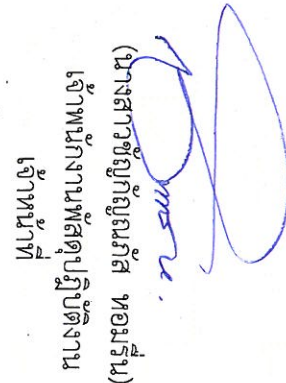 (นางสาวชัญภัญณภัส หอมรื่น)
เจ้าพนักงานพัสดุปฏิบัติงาน
เจ้าหน้าที่